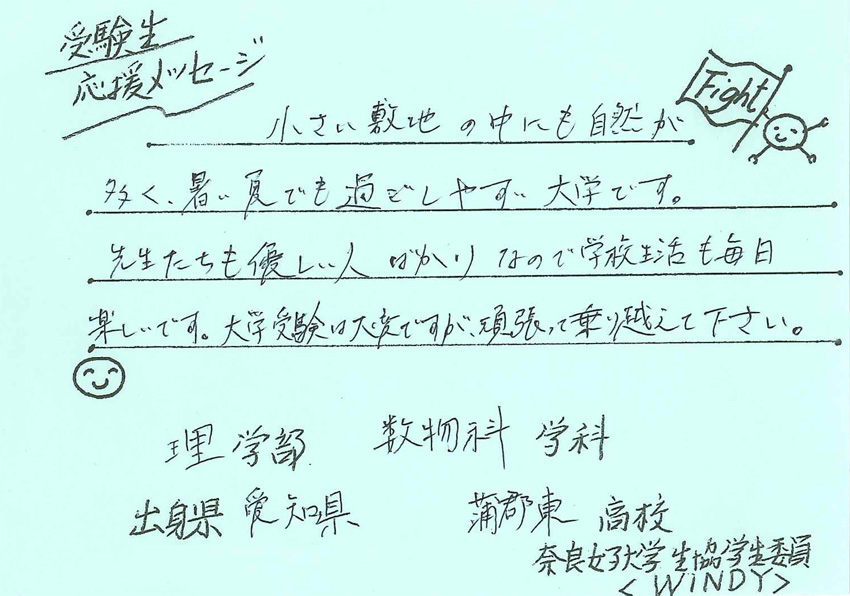 受験生
応援メッセージ
Fight
小さい敷地の中にも自然が
多く、暑い夏でも過ごしやすい大学です。
先生たちも優しい人ばかりなので学校生活も毎日
楽しいです。大学受験は大変ですが、頑張って乗り越えて下さい。
理学部 数物科学科
出身県 愛知県 蒲郡東高校
奈良女子大学生協学生委員
<WINDY>